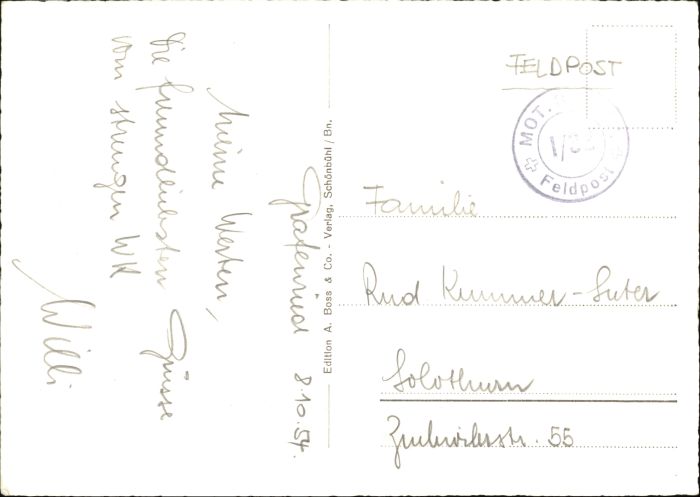 Grafenried 8.10.54.
Meine Werten,
die freundlichsten Grüsse
vom strengen WK
Willi
Edition A. Boss & Co. - Verlag, Schönbühl / Bn.
FELDPOST
MOT.
1/
Feldpost
Familie
Rud Kummer-Suter
Solothurn
55